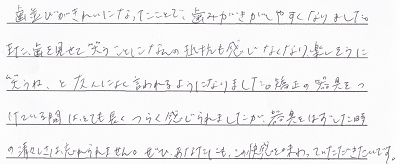 歯並びがきれいになったことで、歯みがきがしやすくなりました。
また、歯を見せて笑うことに何の抵抗も感じなくなり、楽しそうに
笑うね、と友人によく言われるようになりました。矯正の器具をつ
けている間は、とても長くつらく感じられましたが、器具をはずした時
の清々しさは忘れられません。ぜひ、あなたにも、この快感を味わっていただきたいです。